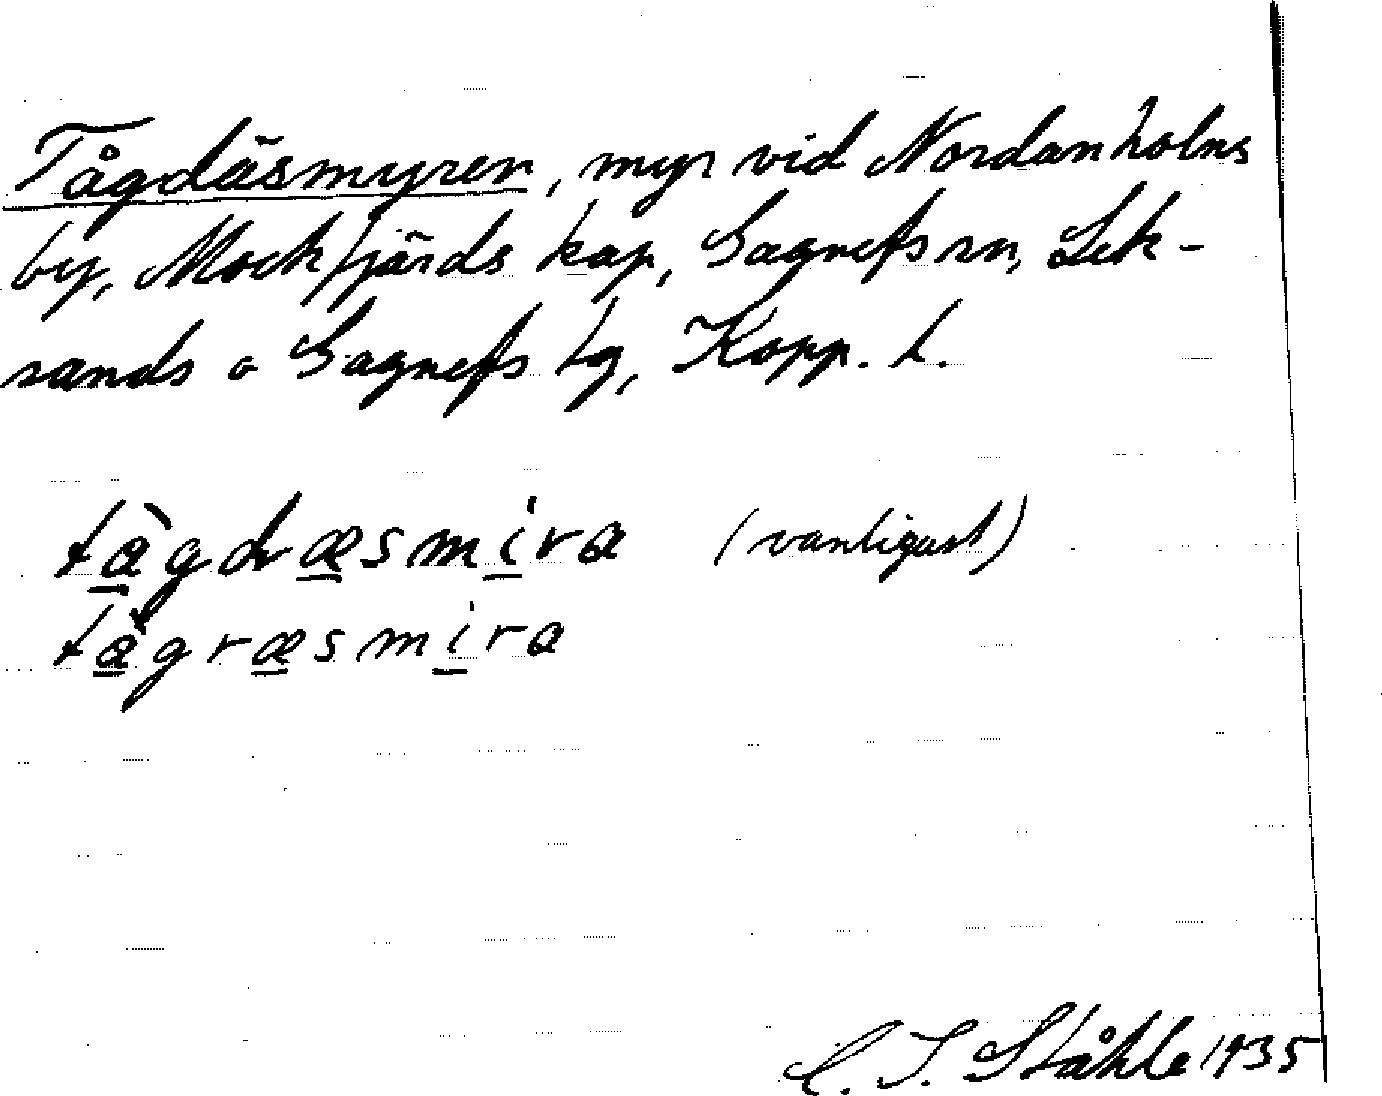 Tågdäsmyren, myr vid Nordanholns
by, Mockfjärds kap, Gagnefs sn, Lek-
sands o Gagnefs tg, Kopp. l.
tàgdræsmira (vanligast)
tàgræsmira
C. I. Ståhle 1935